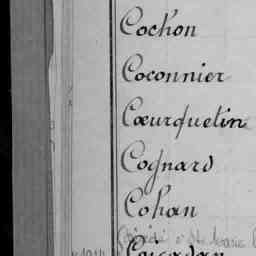 Cochon
Coconnier
Cœurquetin
Cognard
Cohan